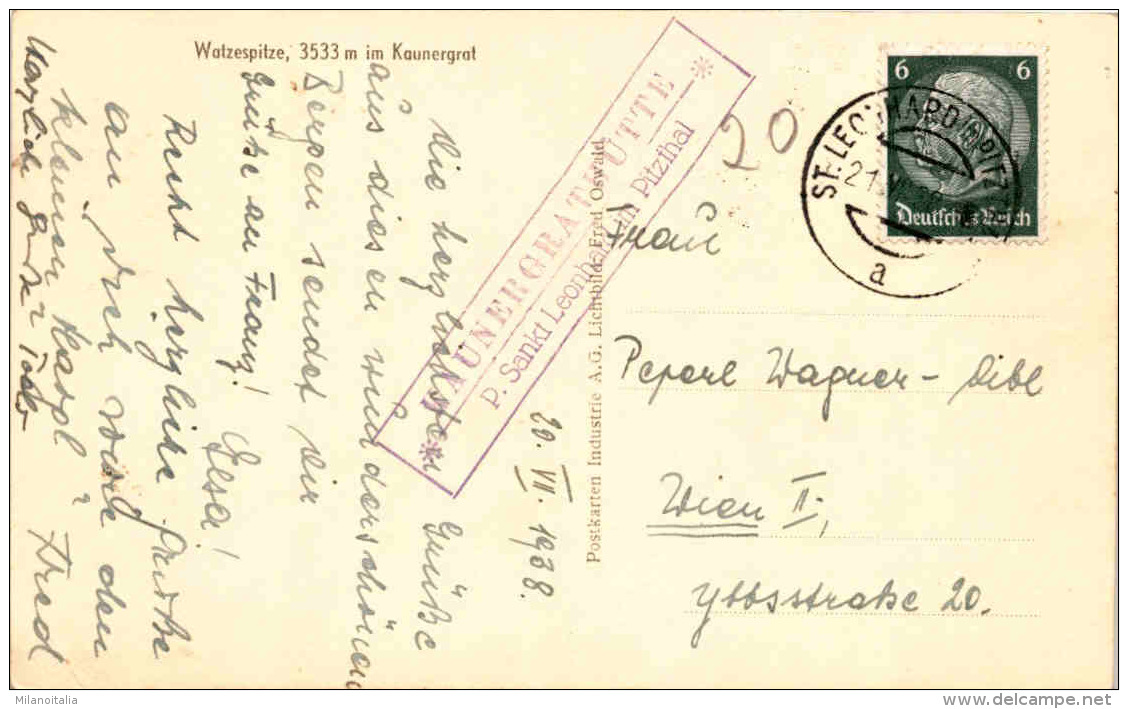 Watzespitze, 3533 m im Kaunergrat
20. VII. 1938.
Die herzlichsten Grüße
aus diesen wunderschönen
Bergen sendet dir
Grüße an Franz! Elsa!
Recht herzliche Grüße
an Dich sowie den
kleinen Karpl? Fred
Herzliche Grüße
* KAUNERGRATHÜTTE *
P. Sankt Leonhard im Pitzthal
Postkarten Industrie A.G. Lichtbild: Fred Oswald
20
6 6
Deutsches Reich
ST. LEONHARD (PITZTAL)
a
Frau
Peperl Wagner - Dibl
Wien II,
Ybbsstraße 20.
Milanoitalia
www.delcampe.net